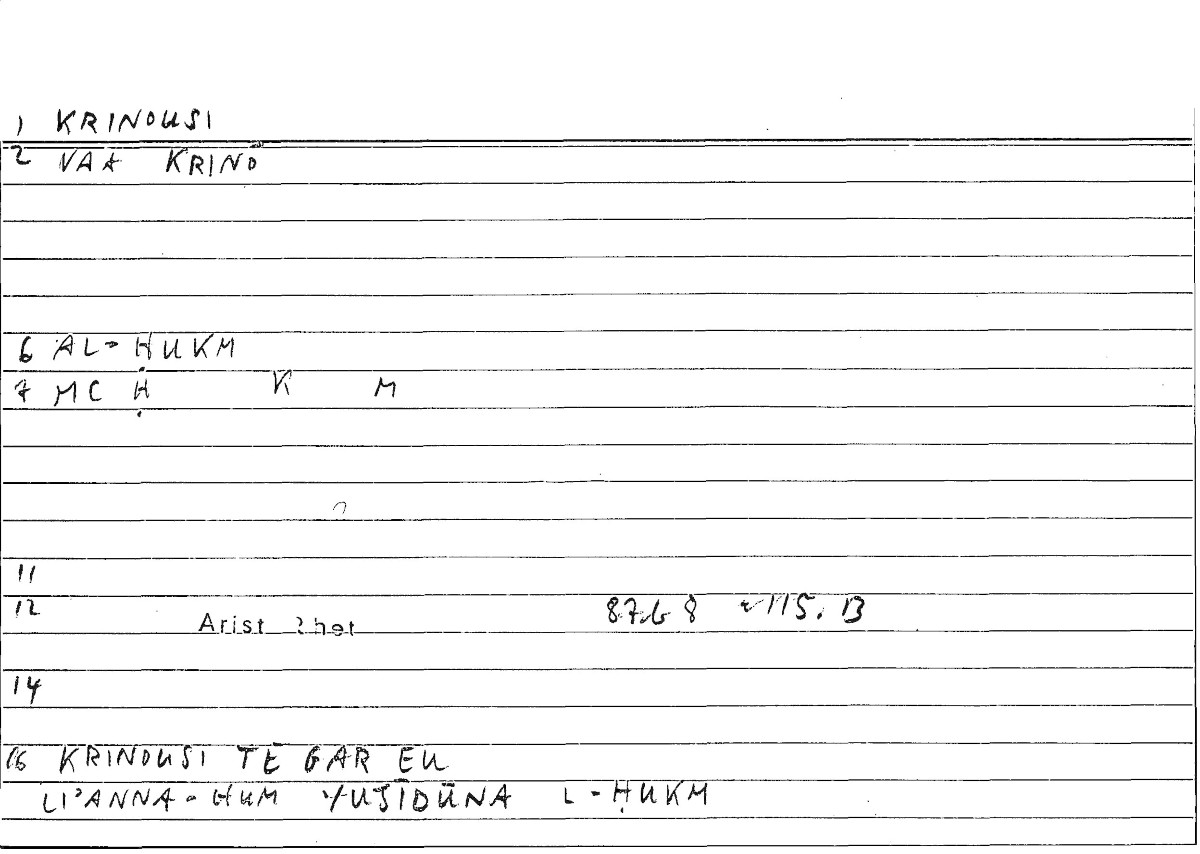 1 KRINOUSI
2 VAA KRINŌ
6 AL-ḤUKM
7 MC Ḥ K M
11
12 Arist Rhet 87b 8 115. 13
14
16 KRINOUSI TE GAR EU
LI'ANNA-HUM YUJĪDŪNA L-ḤUKM